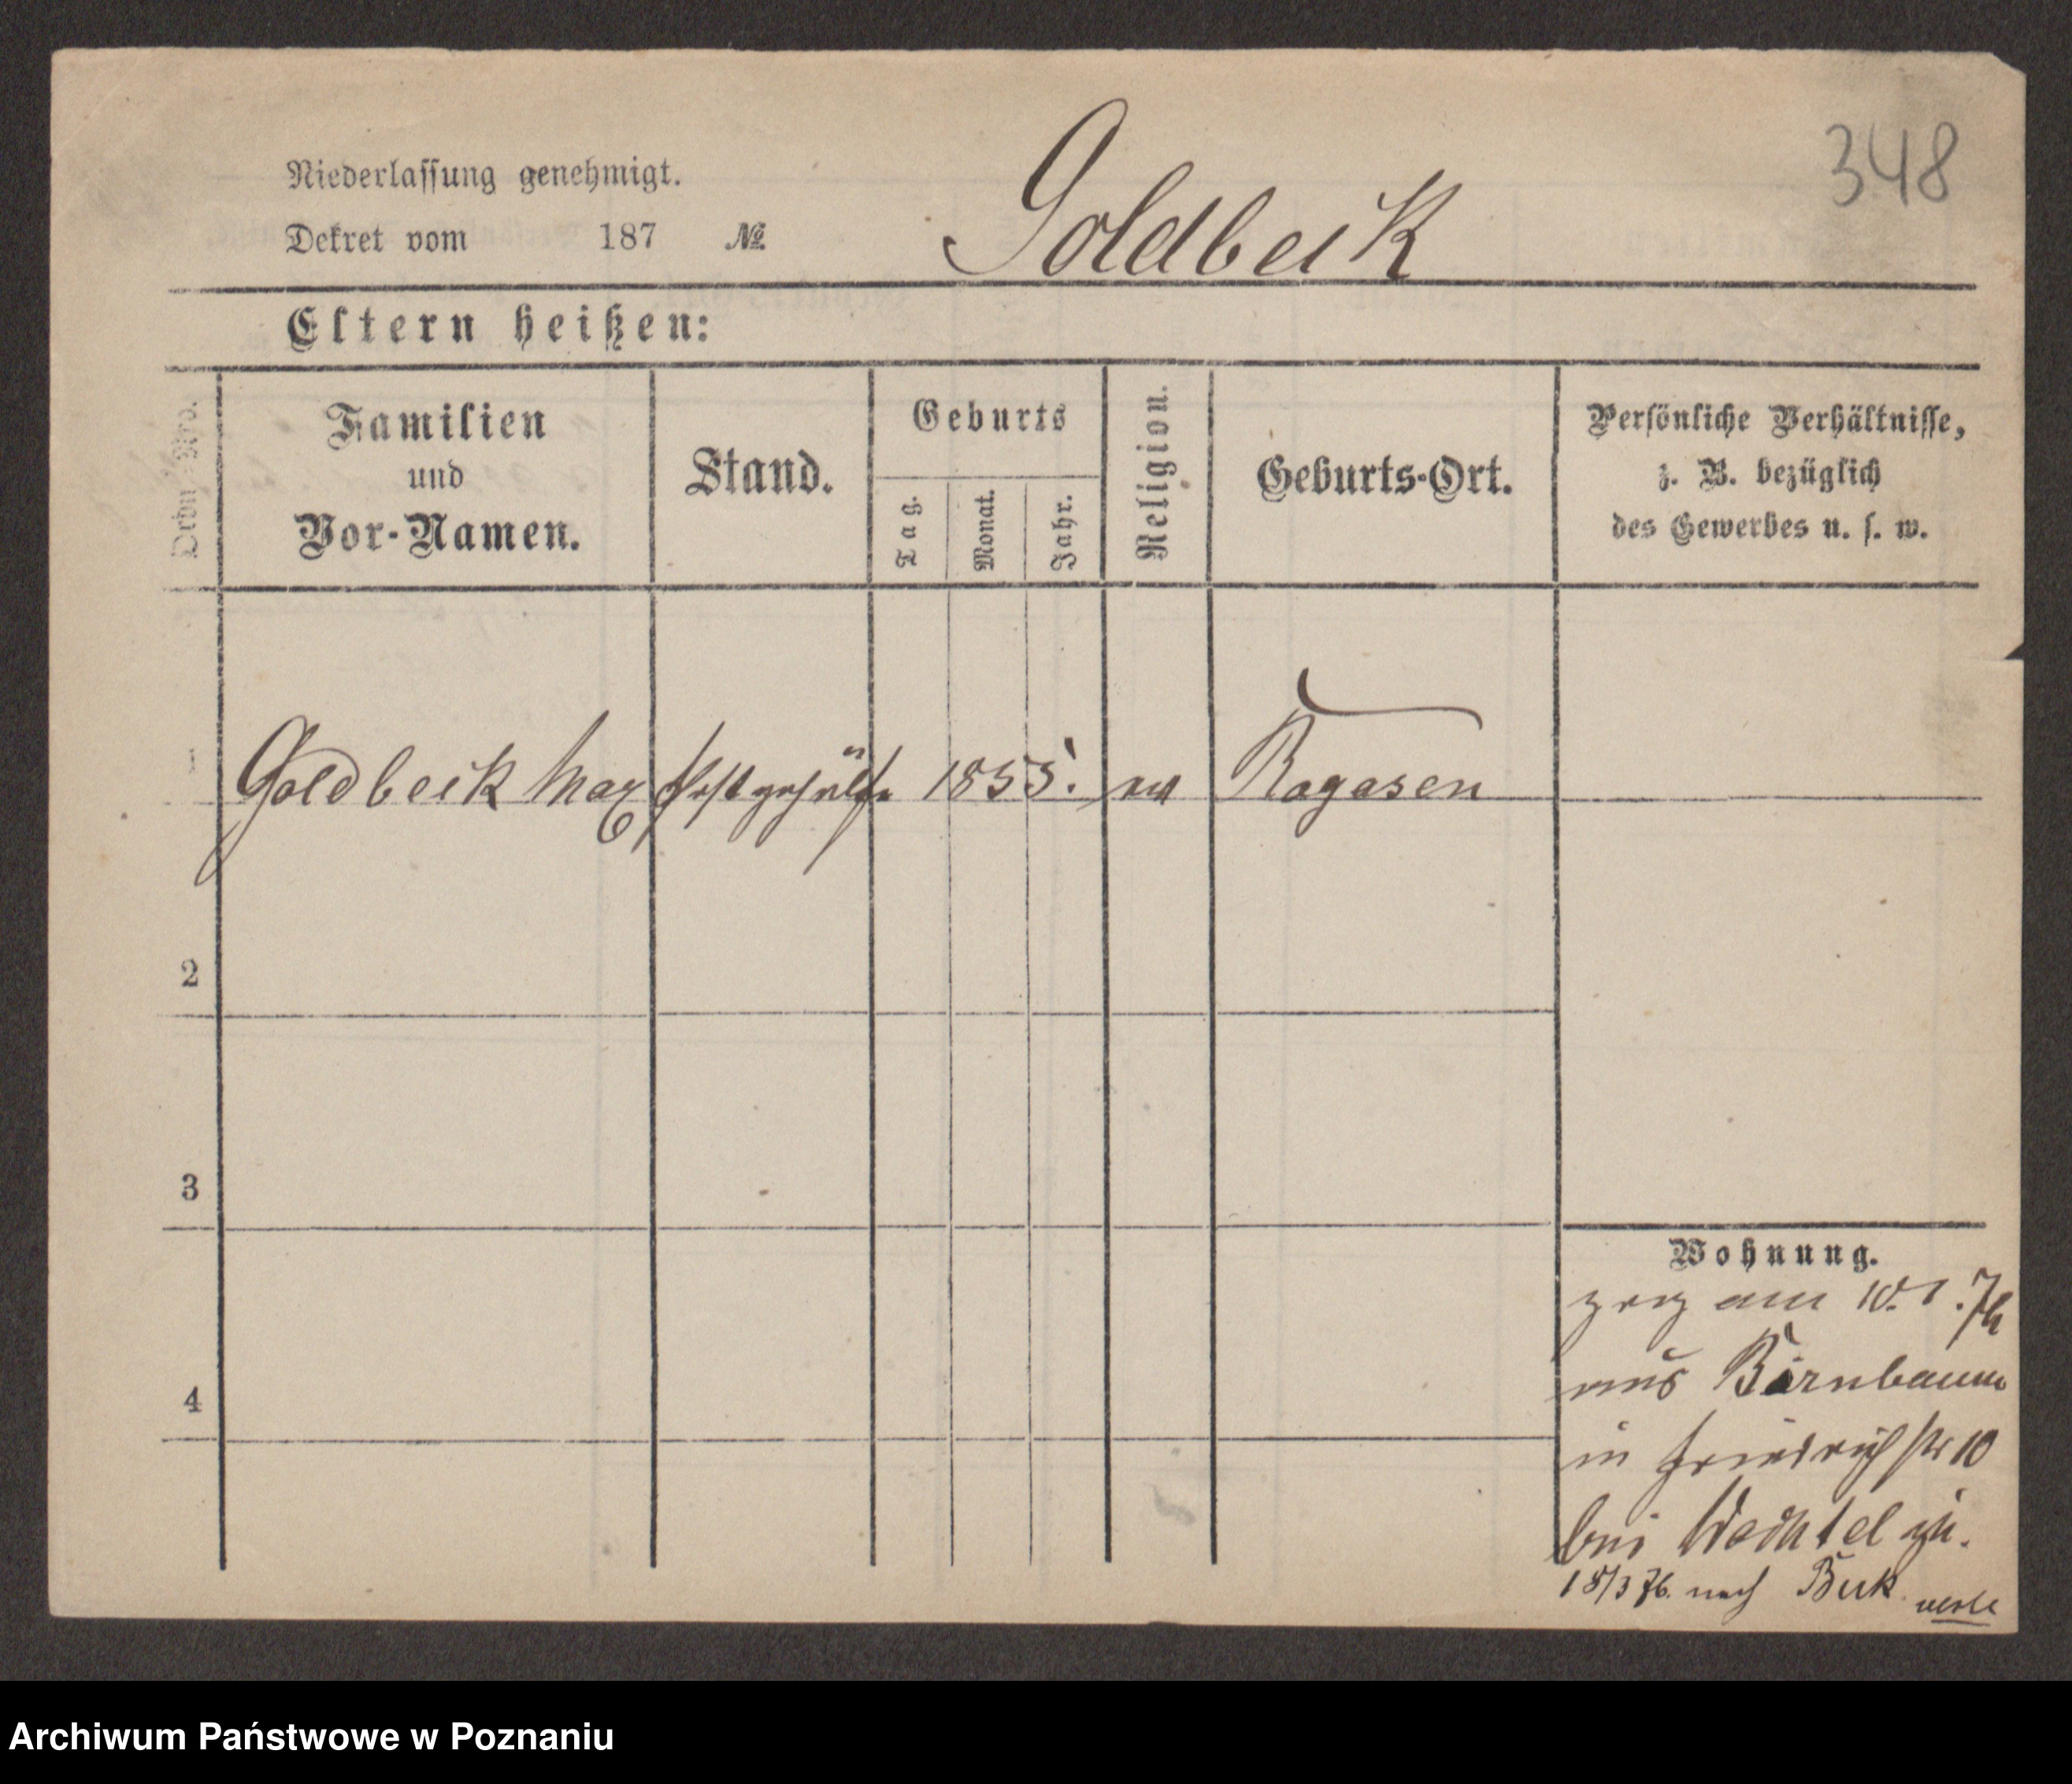 348
Niederlassung genehmigt.
Dekret vom 187 №
Goldbeik
Eltern heißen:
Ordn.-Nro.
Familien
und
Vor-Namen.
Stand.
Geburts
Tag.
Monat.
Jahr.
Religion.
Geburts-Ort.
Persönliche Verhältnisse,
z. B. bezüglich
des Gewerbes u. s. w.
1 Goldbeik Max Postgehülfe 1855. Rogasen
2
3
4
Wohnung.
zog am 10. 1. 76
aus Birnbaum
in Friedrichstr 10
bei Wachtel zu.
18/3 76. nach Buk
Archiwum Państwowe w Poznaniu